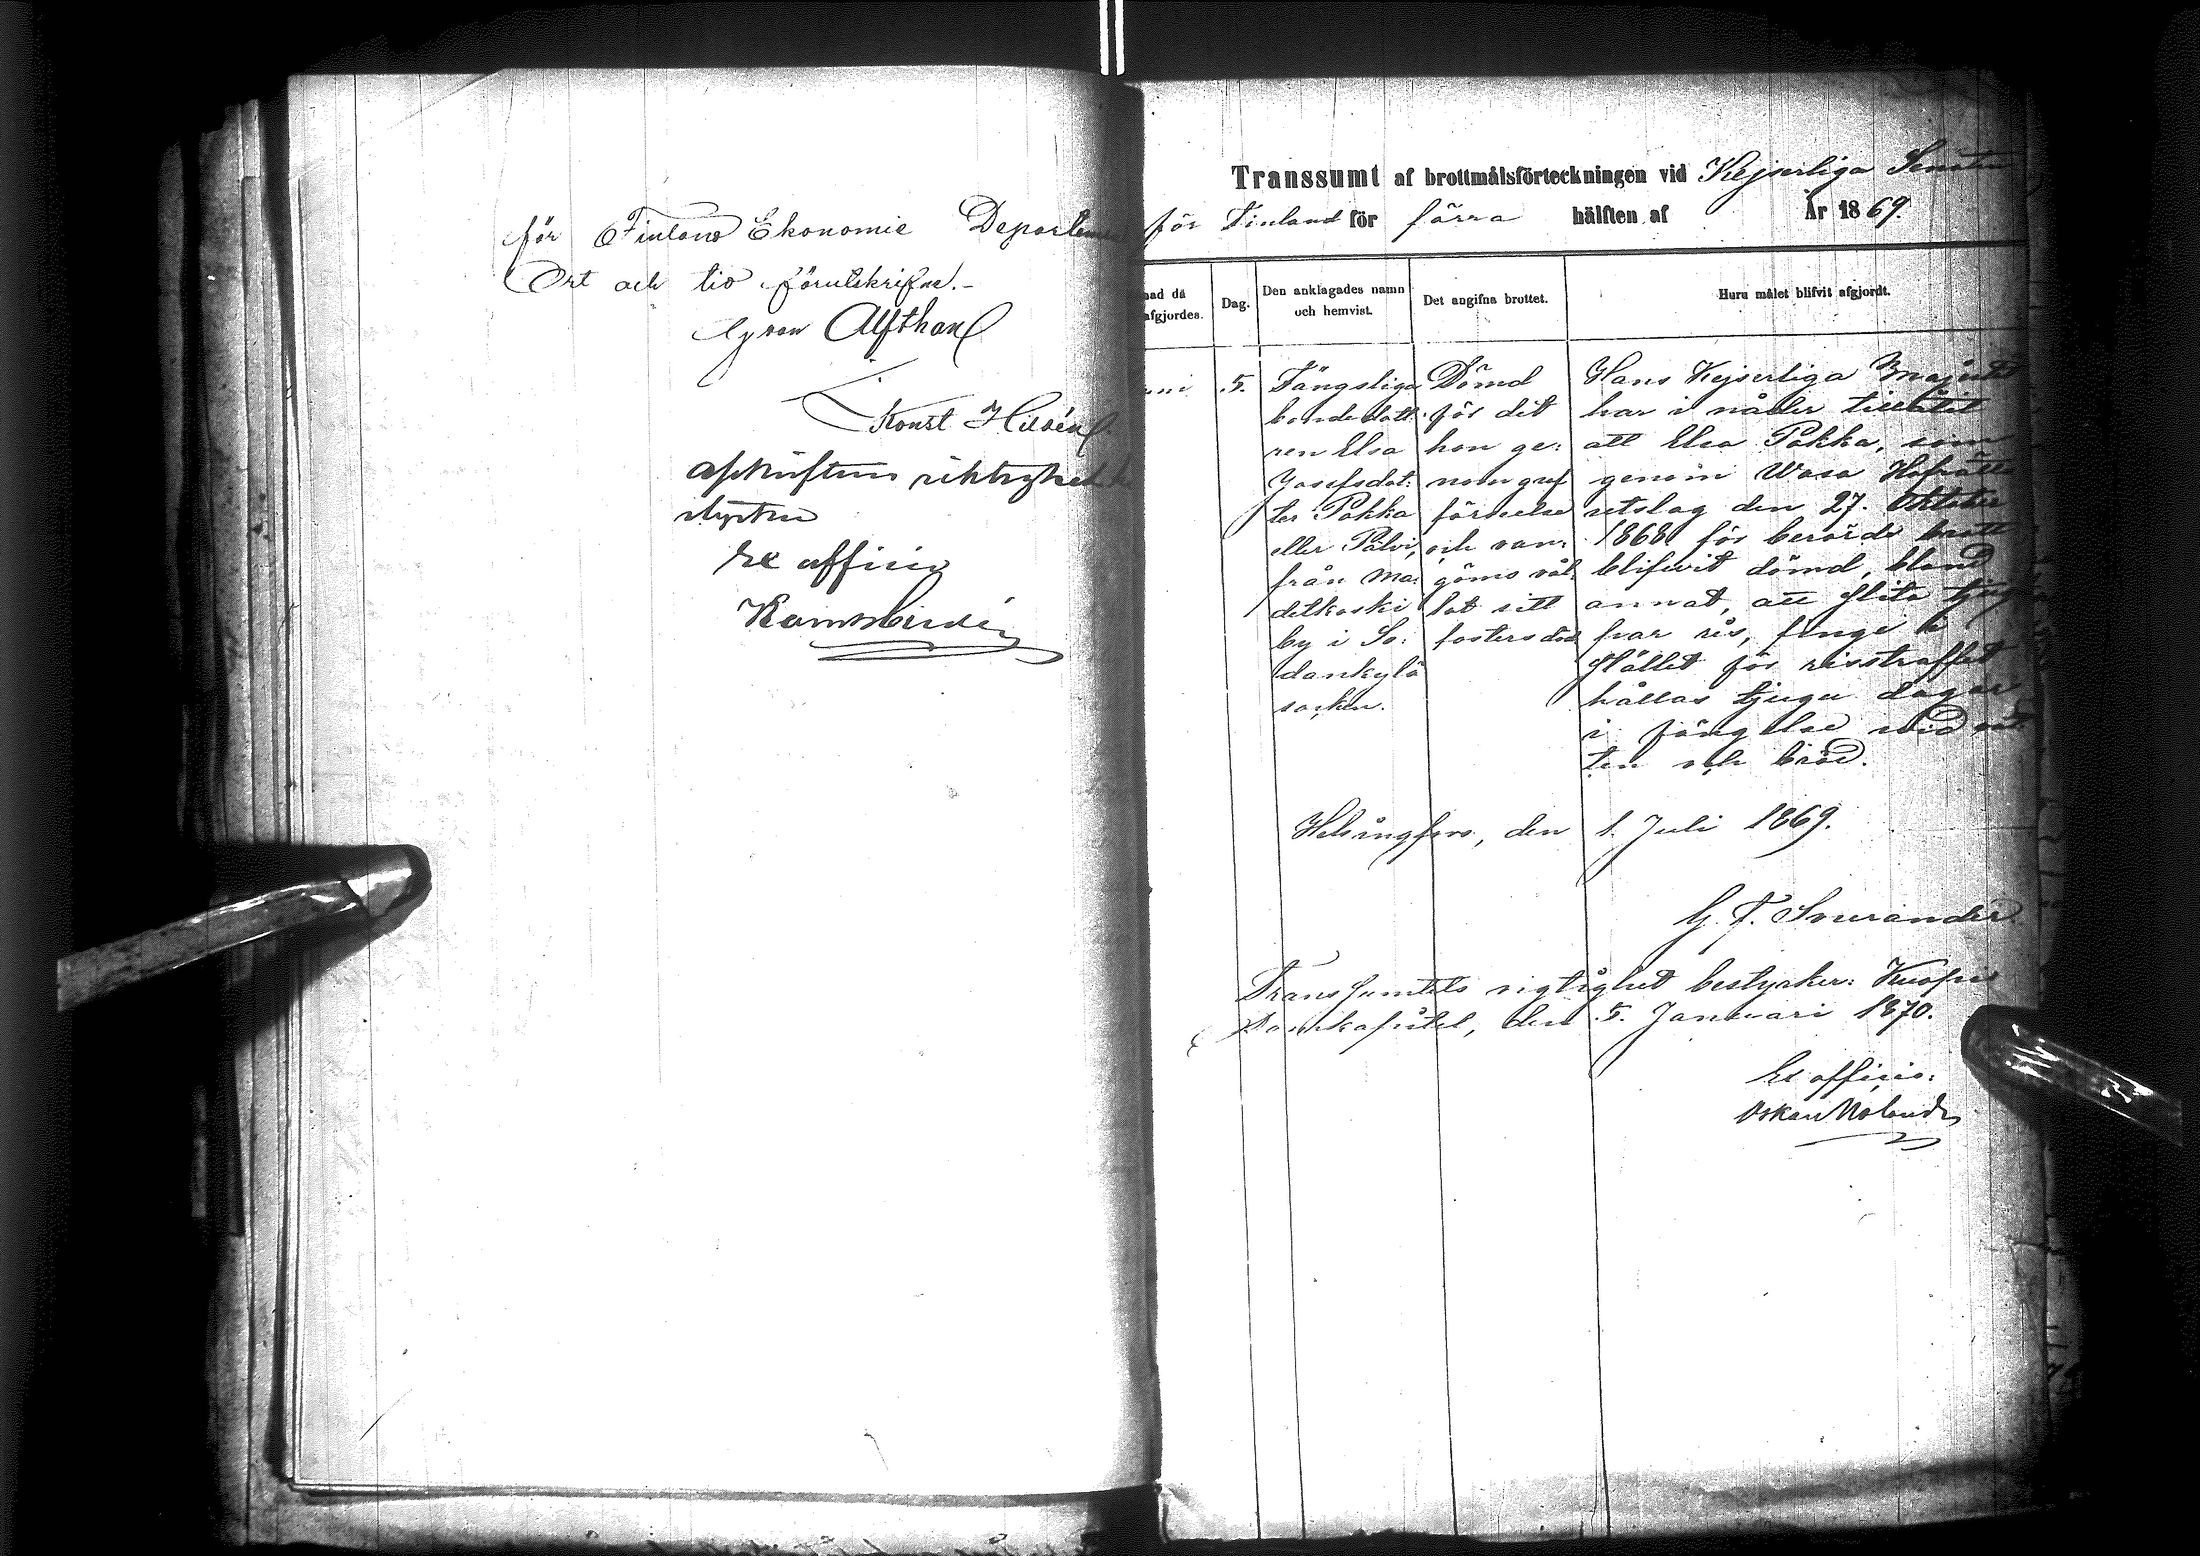 för Finland Ekonomie Departem
Ort och tid förutskrifne.-
Georg Alfthan
Konst Hisén
afskriftens riktighet
styrker
Ex officio
Transsumt af brottmålsförteckningen vid Kejserliga Senaten
för Finland för förra hälften af År 1869.
nad då afgjordes.
Dag.
Den anklagades namn och hemvist.
Det angifna brottet.
Huru målet blifvit afgjordt.
uni
5.
Fängsliga
bondedott:
ren Elsa
Josefsdot:
ter Pokka
eller Palvi,
från Ma:
detkoski
by i So:
dankylä
socken.
Dömd
för det
hon ge:
nom grof
förseelse
och van:
göms vål:
lat sitt
fosters död
Hans Kejserliga Majestät
har i nåder tillåtit
att Elsa Pokka, som
genom Wasa Hofrätts
utslag den 27. Oktober
1868 för berörde brott
blifvit dömd, bland
annat, att slita tjugu
par ris, finge i
stället för risstraffet
hållas tjugu dagar
i fängelse vid vat:
ten och bröd.
Helsingfors, den 1. Juli 1869.
G. F. Snurander
Transsumtets rigtighet bestyrker: Kuopio
Domkapitel, den 5. Januari 1870.
Ex officio:
Oskar Molander